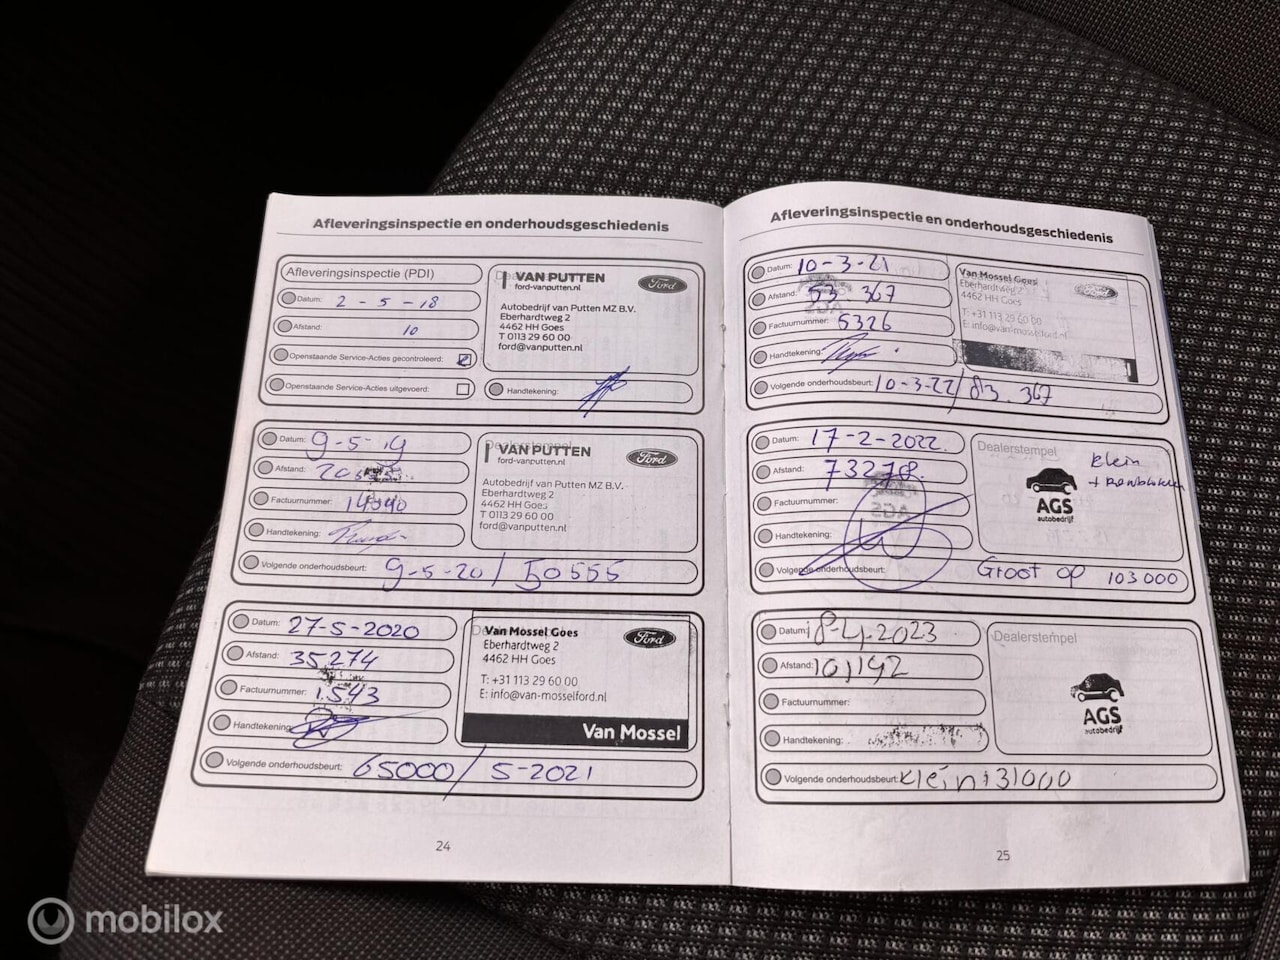 Afleveringsinspectie en onderhoudsgeschiedenis
Afleveringsinspectie (PDI)
Datum: 2 - 5 - 18
Afstand: 10
Openstaande Service-Acties gecontroleerd:
Openstaande Service-Acties uitgevoerd:
VAN PUTTEN
ford-vanputten.nl
Ford
Autobedrijf van Putten MZ B.V.
Eberhardtweg 2
4462 HH Goes
T 0113 29 60 00
ford@vanputten.nl
Handtekening:
Datum: 9-5-19
Afstand:
Factuurnummer:
Handtekening:
Dealerstempel
VAN PUTTEN
ford-vanputten.nl
Ford
Autobedrijf van Putten MZ B.V.
Eberhardtweg 2
4462 HH Goes
T 0113 29 60 00
ford@vanputten.nl
Volgende onderhoudsbeurt: 9-5-20 / 50555
Datum: 27-5-2020
Afstand: 35274
Factuurnummer: 1.543
Handtekening:
Van Mossel Goes
Ford
Eberhardtweg 2
4462 HH Goes
T: +31 113 29 60 00
E: info@van-mosselford.nl
Van Mossel
Volgende onderhoudsbeurt: 65000 / 5-2021
24
Afleveringsinspectie en onderhoudsgeschiedenis
Datum: 10-3-21
Afstand: 53 367
Factuurnummer: 5326
Handtekening:
Van Mossel Goes
Eberhardtweg 2
4462 HH Goes
T: +31 113 29 60 00
Volgende onderhoudsbeurt: 10-3-22 / 83.367
Datum: 17-2-2022
Afstand: 73278
Factuurnummer:
Handtekening:
Dealerstempel
Klein
AGS
autobedrijf
Volgende onderhoudsbeurt: Groot op 103000
Datum: 18-4-2023
Afstand: 101192
Factuurnummer:
Handtekening:
Dealerstempel
AGS
autobedrijf
Volgende onderhoudsbeurt: Klein 131000
25
mobilox